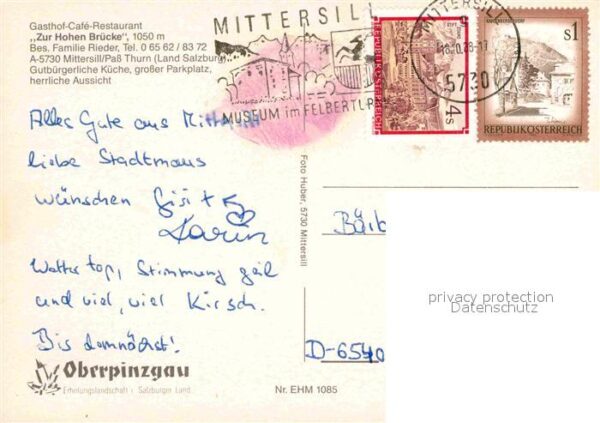 Gasthof-Café-Restaurant
„Zur Hohen Brücke", 1050 m
Bes. Familie Rieder, Tel. 0 65 62 / 83 72
A-5730 Mittersill/Paß Thurn (Land Salzburg)
Gutbürgerliche Küche, großer Parkplatz,
herrliche Aussicht
MITTERSILL
MUSEUM im FELBERTU
REPUBLIK ÖSTERREICH
4s
MITTERSILL
5730
s1
REPUBLIK ÖSTERREICH
Alles Gute aus Mittersill
liebe Stadtmaus
wünschen Gisi +
Karin
Wetter top, Stimmung geil
und viel, viel Kirsch.
Bis demnächst!
Foto Huber, 5730 Mittersill
Bärb
D-6540
privacy protection
Datenschutz
Oberpinzgau
Erholungslandschaft · Salzburger Land
Nr. EHM 1085